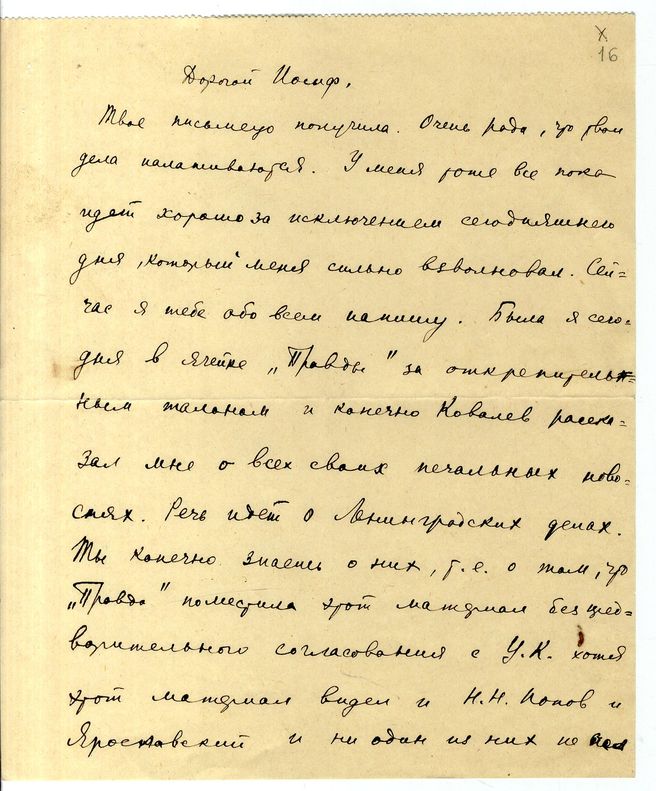 х
16
Дорогой Иосиф,
Твое письмецо получила. Очень рада, что твои
дела налаживаются. У меня тоже все пока
идет хорошо за исключением сегодняшнего
дня, который меня сильно взволновал. Сей=
час я тебе обо всем напишу. Была я сего=
дня в ячейке „Правды" за открепитель=
ным талоном и конечно Ковалев расска=
зал мне о всех своих печальных ново=
стях. Речь идет о Ленинградских делах.
Ты конечно знаешь о них, т.е. о том, что
„Правда" поместила этот материал без
варительного согласования с Ц.К. хотя
этот материал видел и Н.Н. Попов и
Ярославский и ни один из них не